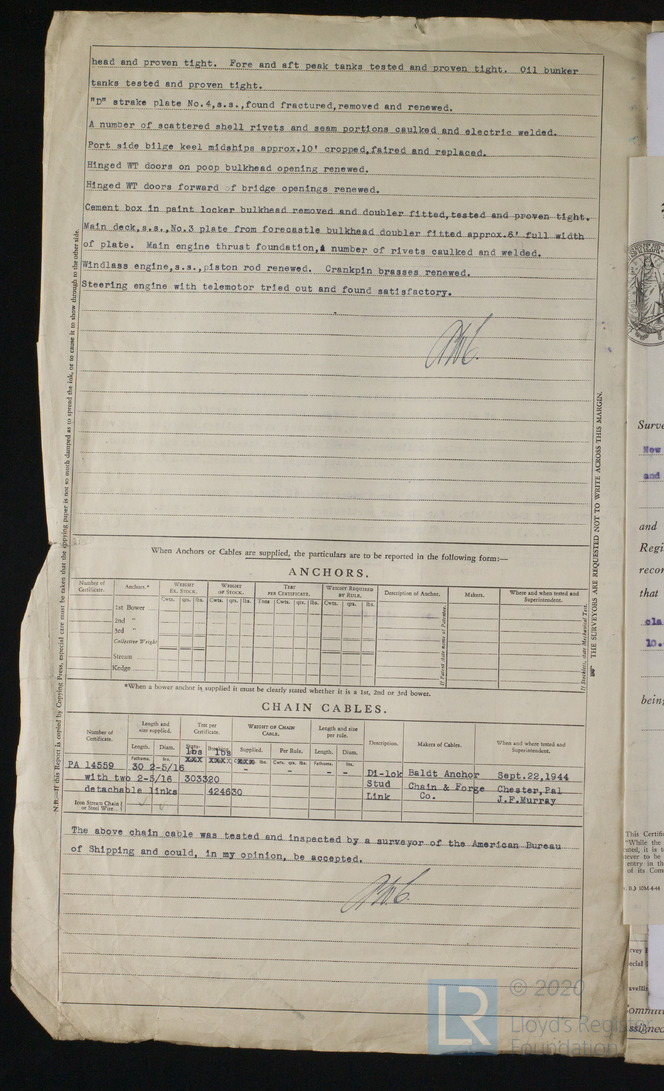 head and proven tight. Fore and aft peak tanks tested and proven tight. Oil bunker
tanks tested and proven tight.
"D" strake plate No.4,s.s.,found fractured,removed and renewed.
A number of scattered shell rivets and seam portions caulked and electric welded.
Port side bilge keel midships approx.10' cropped,faired and replaced.
Hinged WT doors on poop bulkhead opening renewed.
Hinged WT doors forward of bridge openings renewed.
Cement box in paint locker bulkhead removed and doubler fitted,tested and proven tight.
Main deck,s.s.,No.3 plate from forecastle bulkhead doubler fitted approx.6' full width
of plate. Main engine thrust foundation, number of rivets caulked and welded.
Windlass engine,s.s.,piston rod renewed. Crankpin brasses renewed.
Steering engine with telemotor tried out and found satisfactory.
When Anchors or Cables are supplied, the particulars are to be reported in the following form:—
ANCHORS.
Number of Certificate. Anchors.* WEIGHT EX. STOCK. WEIGHT OF STOCK. TEST PER CERTIFICATE. WEIGHT REQUIRED BY RULE. Description of Anchor. Makers. Where and when tested and Superintendent.
Cwts. qrs. lbs. Cwts. qrs. lbs. Tons Cwts. qrs. lbs. Cwts. qrs. lbs.
1st Bower
2nd "
3rd "
Collective Weight
Stream
Kedge
*When a bower anchor is supplied it must be clearly stated whether it is a 1st, 2nd or 3rd bower.
CHAIN CABLES.
Number of Certificate. Length and size supplied. Test per Certificate. WEIGHT OF CHAIN CABLE. Length and size per rule. Description. Makers of Cables. When and where tested and Superintendent.
Length. Diam. Supplied. Per Rule. Length. Diam.
lbs lbs
PA 14559 30 2-5/16 - - - Di-lok Baldt Anchor Sept.22,1944
with two 2-5/16 303320 Stud Chain & Forge Chester,Pa
detachable links 424630 Link Co. J.F.Murray
Iron Stream Chain or Steel Wire
The above chain cable was tested and inspected by a surveyor of the American Bureau
of Shipping and could, in my opinion, be accepted.
N.B.—If this Report is copied by Copying Press, especial care must be taken that the copying paper is not so much damped as to spread the ink, or to cause it to show through to the other side.
THE SURVEYORS ARE REQUESTED NOT TO WRITE ACROSS THIS MARGIN.
Surve
New
and
and
Regi
recor
that
cla
10.
being
This Certifi
"While the
of its Com
© 2020
Lloyd's Register
Foundation